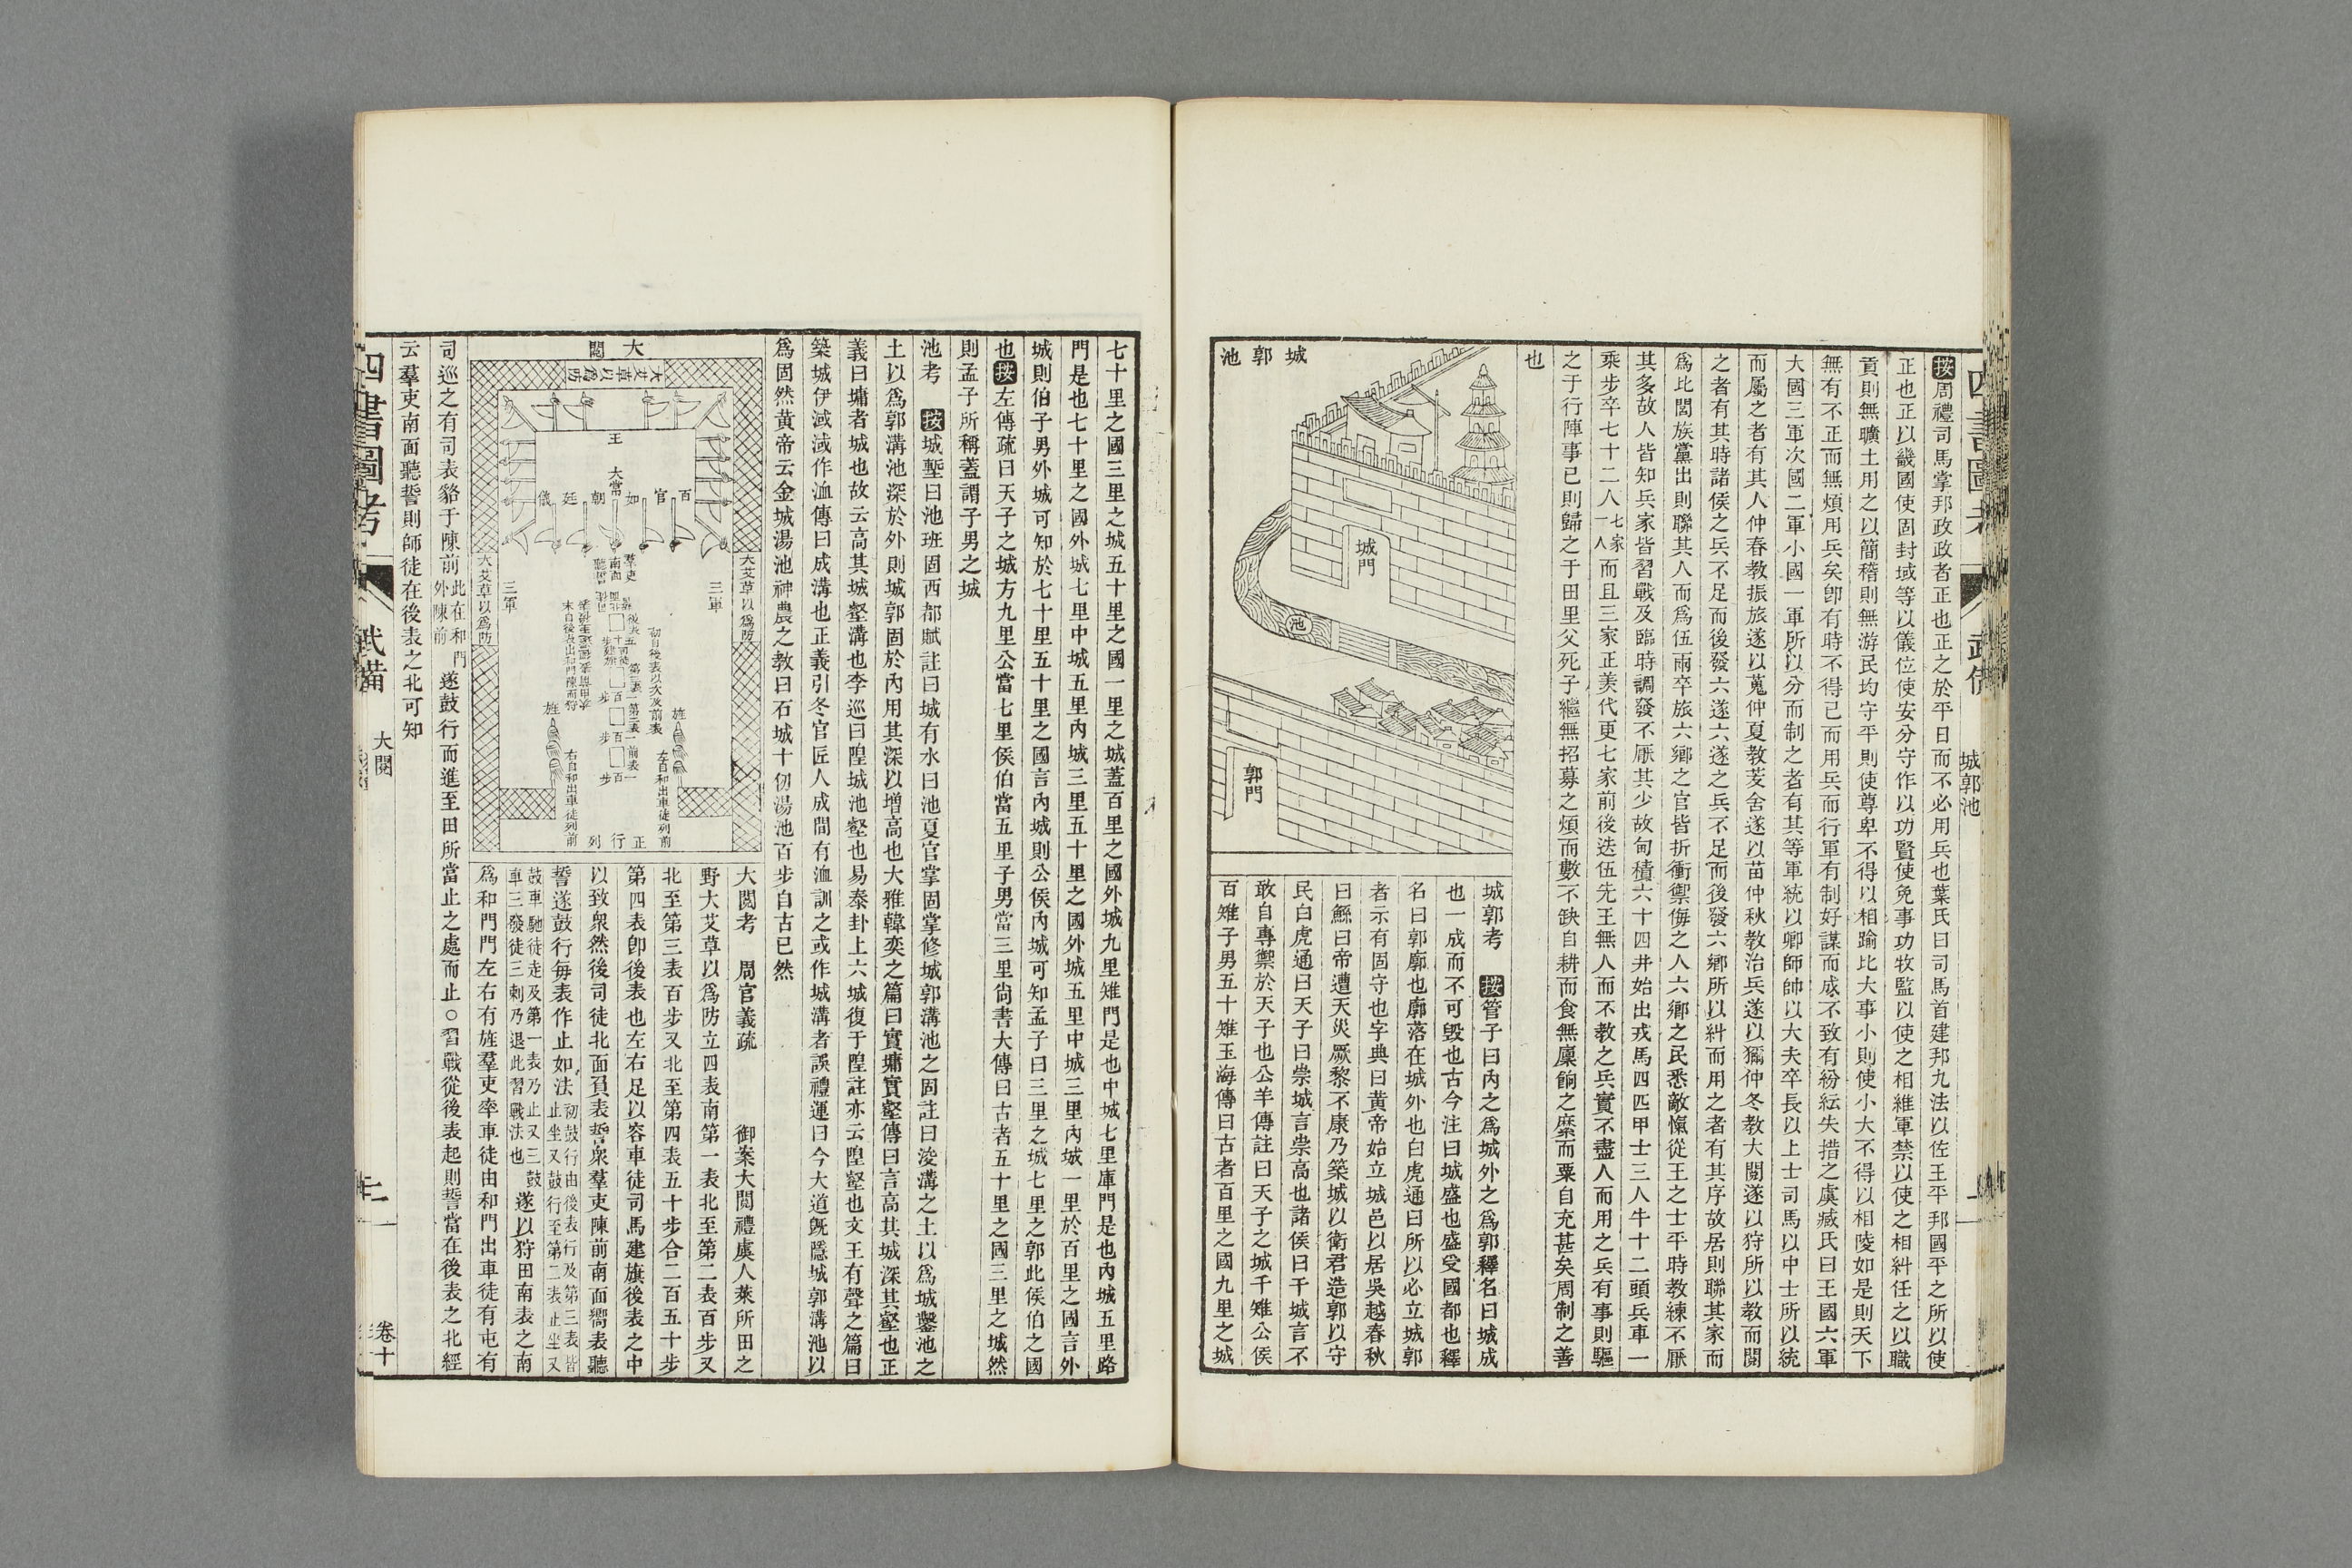 按周禮司馬掌邦政政者正也正之於平日而不必用兵也葉氏曰司馬首建邦九法以佐王平邦國平之所以使
正也正以畿國使固封域等以儀位使安分守作以功賢使免事功牧監以使之相維軍禁以使之相糾任之以職
貢則無曠土用之以簡稽則無游民均守平則使尊卑不得以相踰比大事小則使小大不得以相陵如是則天下
無有不正而無煩用兵矣卽有時不得已而用兵而行軍有制好謀而成不致有紛紜失措之虞臧氏曰王國六軍
大國三軍次國二軍小國一軍所以分而制之者有其等軍統以卿師帥以大夫卒長以上士司馬以中士所以統
而屬之者有其人仲春教振旅遂以蒐仲夏教茇舍遂以苗仲秋教治兵遂以獮仲冬教大閱遂以狩所以教而閱
之者有其時諸侯之兵不足而後發六遂六遂之兵不足而後發六鄉所以糾而用之者有其序故居則聯其家而
爲比閭族黨出則聯其人而爲伍兩卒旅六鄉之官皆折衝禦侮之人六鄉之民悉敵愾從王之士平時教練不厭
其多故人皆知兵家皆習戰及臨時調發不厭其少故甸積六十四井始出戎馬四匹甲士三人牛十二頭兵車一
乘步卒七十二人七家一人而且三家正羨代更七家前後迭伍先王無人而不教之兵實不盡人而用之兵有事則驅
之于行陣事已則歸之于田里父死子繼無招募之煩而數不缺自耕而食無廩餉之縻而粟自充甚矣周制之善
也
城郭池
城門
池
郭門
城郭考 按管子曰內之爲城外之爲郭釋名曰城成
也一成而不可毀也古今注曰城盛也盛受國都也釋
名曰郭廓也廓落在城外也白虎通曰所以必立城郭
者示有固守也字典曰黃帝始立城邑以居吳越春秋
曰鯀曰帝遭天災厥黎不康乃築城以衛君造郭以守
民白虎通曰天子曰崇城言崇高也諸侯曰干城言不
敢自專禦於天子也公羊傳註曰天子之城千雉公侯
百雉子男五十雉玉海傳曰古者百里之國九里之城
七十里之國三里之城五十里之國一里之城蓋百里之國外城九里雉門是也中城七里庫門是也內城五里路
門是也七十里之國外城七里中城五里內城三里五十里之國外城五里中城三里內城一里於百里之國言外
城則伯子男外城可知於七十里五十里之國言內城則公侯內城可知孟子曰三里之城七里之郭此侯伯之國
也按左傳疏曰天子之城方九里公當七里侯伯當五里子男當三里尙書大傳曰古者五十里之國三里之城然
則孟子所稱蓋謂子男之城
池考 按城塹曰池班固西都賦註曰城有水曰池夏官掌固掌修城郭溝池之固註曰浚溝之土以爲城鑿池之
土以爲郭溝池深於外則城郭固於內用其深以增高也大雅韓奕之篇曰實墉實壑傳曰言高其城深其壑也正
義曰墉者城也故云高其城壑溝也李巡曰隍城池壑也易泰卦上六城復于隍註亦云隍壑也文王有聲之篇曰
築城伊淢淢作洫傳曰成溝也正義引冬官匠人成間有洫訓之或作城溝者誤禮運曰今大道旣隱城郭溝池以
爲固然黃帝云金城湯池神農之教曰石城十仞湯池百步自古已然
大閱
大艾草以爲防
王
大常
百官如朝廷儀
大艾草以爲防
大艾草以爲防
三軍
三軍
羣吏南面聽誓
初自後表以次及前表
旌
旌
左自和出車徒列前
右自和出車徒列前
正行列
大閱考 周官義疏 御案大閱禮虞人萊所田之
野大艾草以爲防立四表南第一表北至第二表百步又
北至第三表百步又北至第四表五十步合二百五十步
第四表卽後表也左右足以容車徒司馬建旗後表之中
以致衆然後司徒北面負表誓衆羣吏陳前南面嚮表聽
誓遂鼓行每表作止如法初鼓行由後表行及第三表皆止坐又鼓行至第二表止坐又
鼓車馳徒走及第一表乃止又三鼓車三發徒三刺乃退此習戰法也遂以狩田南表之南
爲和門門左右有旌羣吏率車徒由和門出車徒有屯有
司巡之有司表貉于陳前此在和門外陳前遂鼓行而進至田所當止之處而止○習戰從後表起則誓當在後表之北經
云羣吏南面聽誓則師徒在後表之北可知
四書圖考
武備
大閱
二
卷十